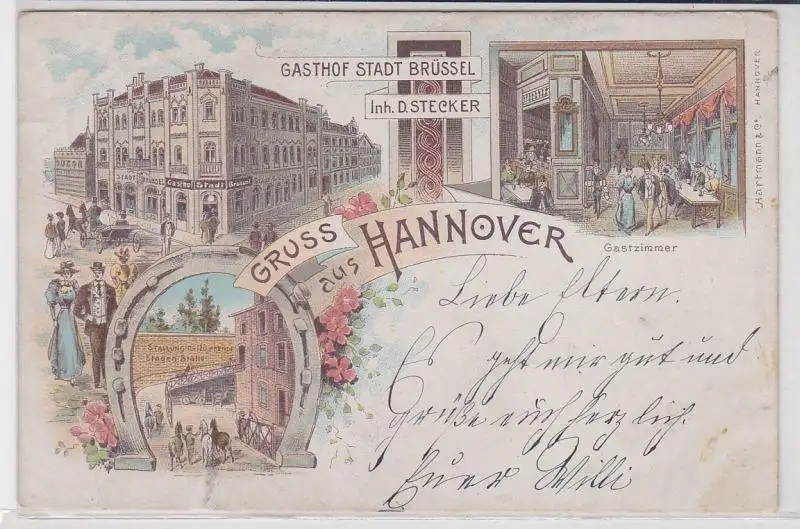 GASTHOF STADT BRÜSSEL
Inh. D. STECKER
GRUSS
aus
HANNOVER
Gasthof Stadt Brüssel
Gastzimmer
Hartmann & Co. HANNOVER
STALLUNG für
Liebe Eltern.
Es geht mir gut und
Grüße euch herzlich.
Euer Willi